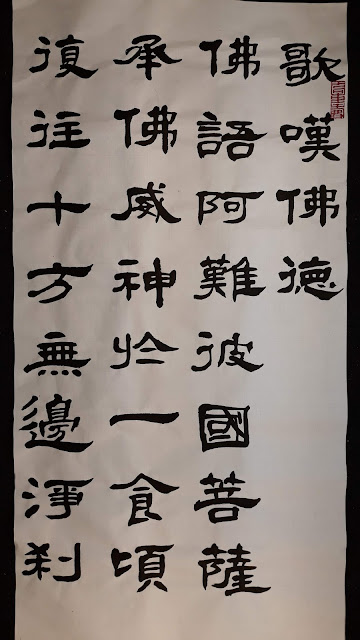 歌嘆佛德
佛語阿難彼國菩薩
承佛威神於一食頃
復往十方無邊淨刹